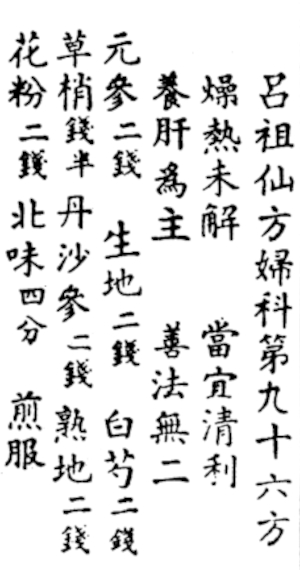 呂祖仙方婦科第九十六方
燥熱未解 當宜清利
養肝為主 善法無二
元參二錢 生地二錢 白芍二錢
草梢錢半 丹沙參二錢 熟地二錢
花粉二錢 北味四分 煎服